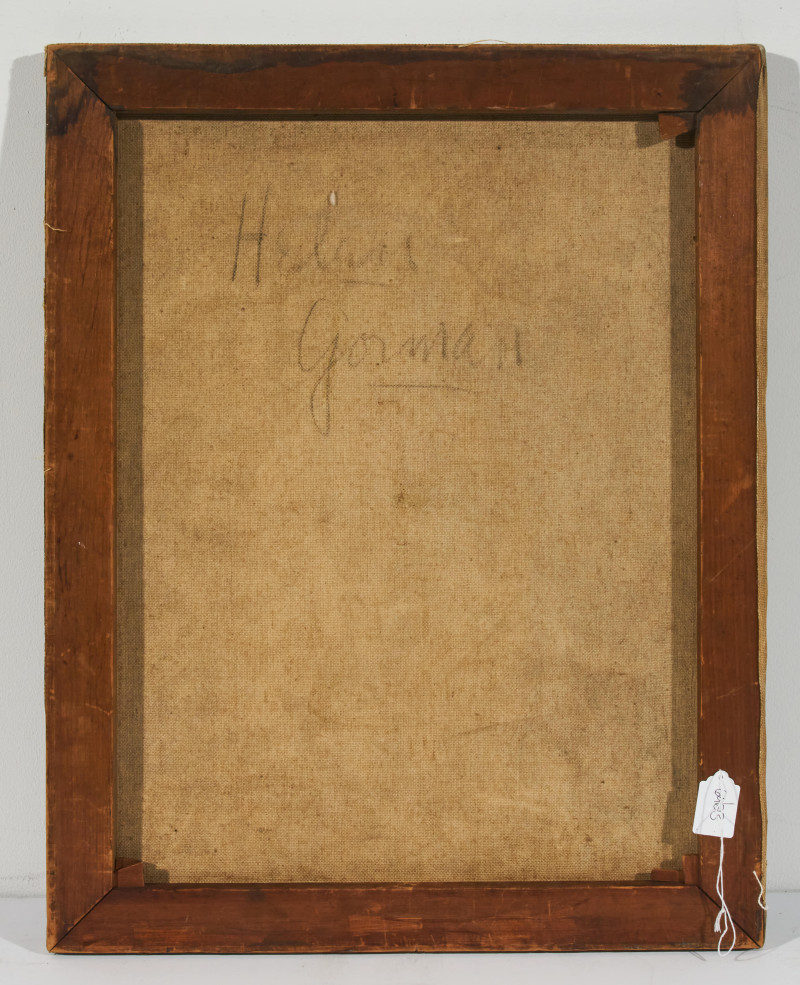 Helen
Gorman